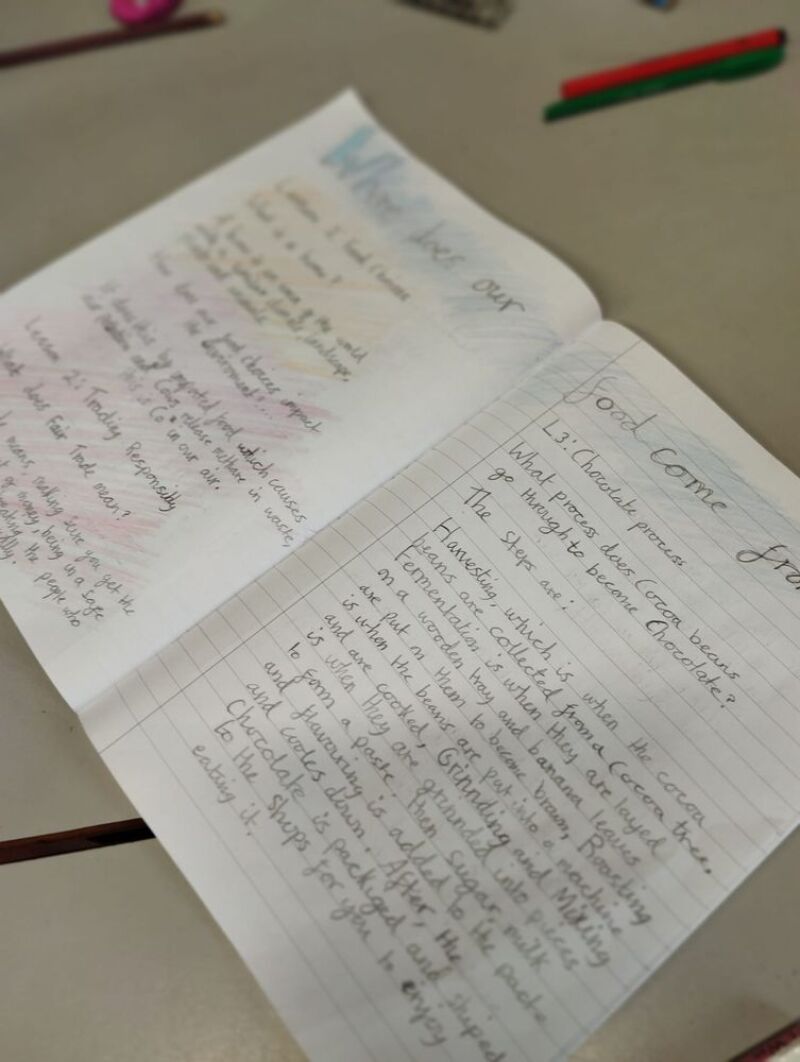 Where does our
Lesson 1: Food Choices
What is a biome?
A biome is an area of the world
with a similar climate, landscape,
How does our food choices impact
the environment?...
It does this by imported food which causes
air pollution and Cows release methane in waste,
This is Co² in our air.
Lesson 2: Trading Responsibly
What does Fair Trade mean?
means making sure you get the
of money, being in a safe
the people who
food come fro
L3: Chocolate process
What process does Cocoa beans
go through to become Chocolate?
The steps are:
Harvesting, which is when the cocoa
beans are collected from a Cocoa tree.
Fermentation is when they are layed
on a wooden tray and banana leaves
are put on them to become brown, Roasting
is when the beans are put into a machine
and are cooked, Grinnding and Mixing
is when they are grinnded into pieces
to form a paste. then sugar, milk
and flavouring is added to the paste
and cooles down. After, the
Chocolate is packiged and shiped
to the shops for you to enjoy
eating it.